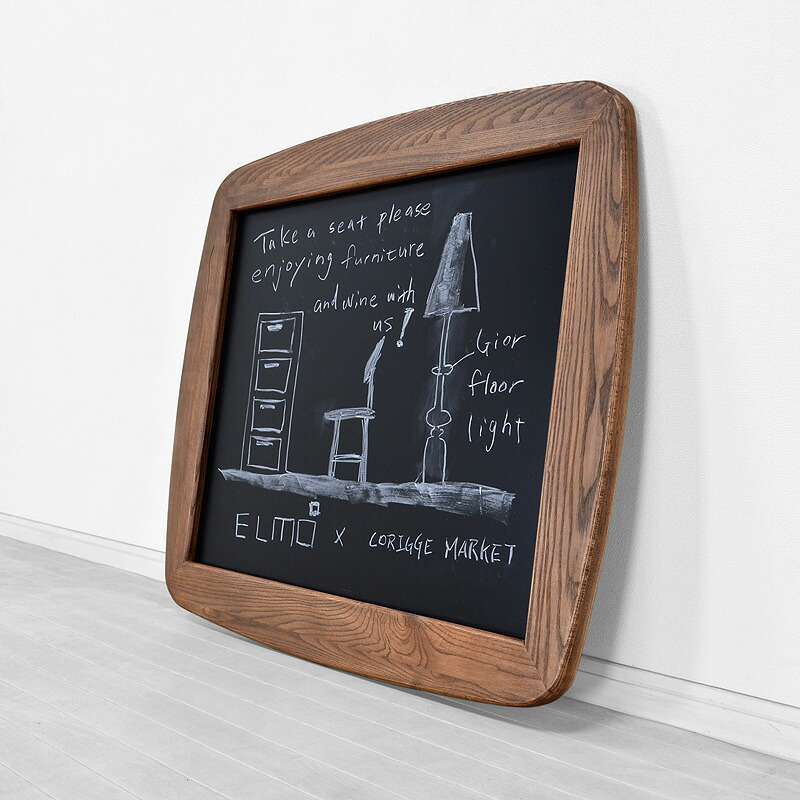 Take a seat please
enjoying furniture
and wine with
us!
Gior
floor
light
ELMO x CORIGGE MARKET